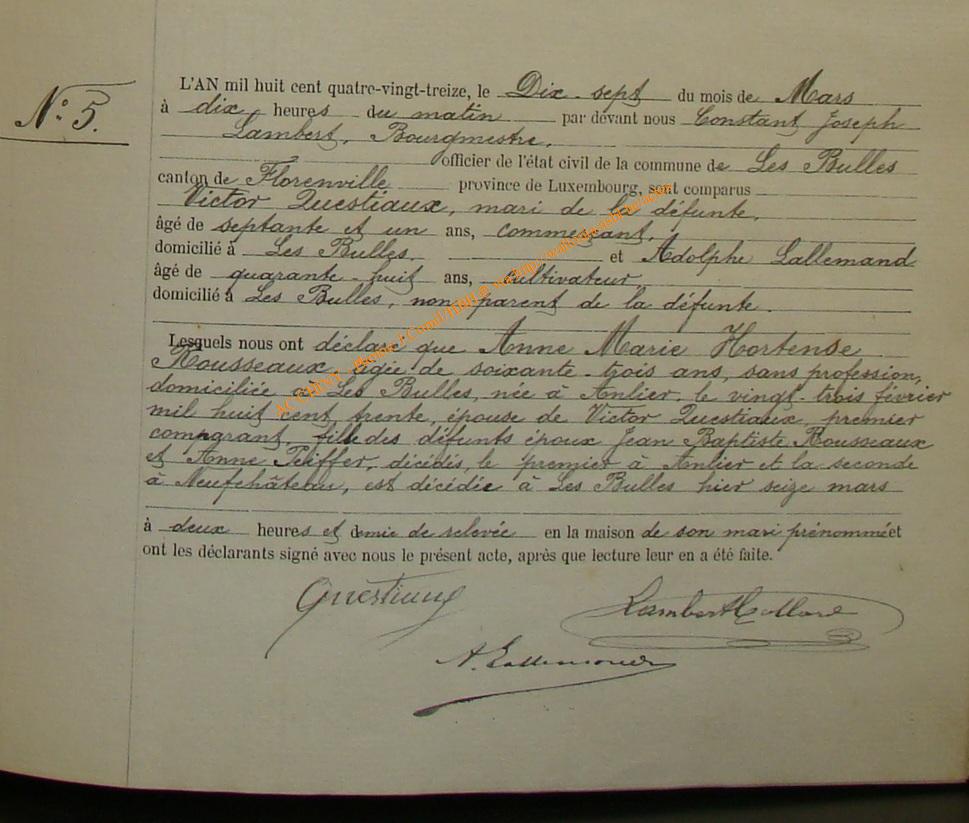 N° 5.
L'AN mil huit cent quatre-vingt-treize, le Dix-sept du mois de Mars
à dix heures du matin par devant nous Constant Joseph
Lambert, Bourgmestre,
officier de l'état civil de la commune de Les Bulles
canton de Florenville province de Luxembourg, sont comparus
Victor Questiaux, mari de la défunte,
âgé de septante et un ans, commerçant,
domicilié à Les Bulles. et Adolphe Lallemand
âgé de quarante-huit ans, cultivateur
domicilié à Les Bulles, non parent de la défunte.
Lesquels nous ont déclaré que Anne Marie Hortense
Rousseaux, âgée de soixante-trois ans, sans profession,
domiciliée à Les Bulles, née à Anlier, le vingt-trois février
mil huit cent trente, épouse de Victor Questiaux, premier
comparant, fille des défunts époux Jean Baptiste Rousseaux
et Anne Peiffer, décédés, le premier à Anlier et la seconde
à Neufchâteau, est décédée à Les Bulles hier seize mars
à deux heures et demie de relevée en la maison de son mari prénommé et
ont les déclarants signé avec nous le présent acte, après que lecture leur en a été faite.
Questiaux
Lambert Collard
A. Lallemand